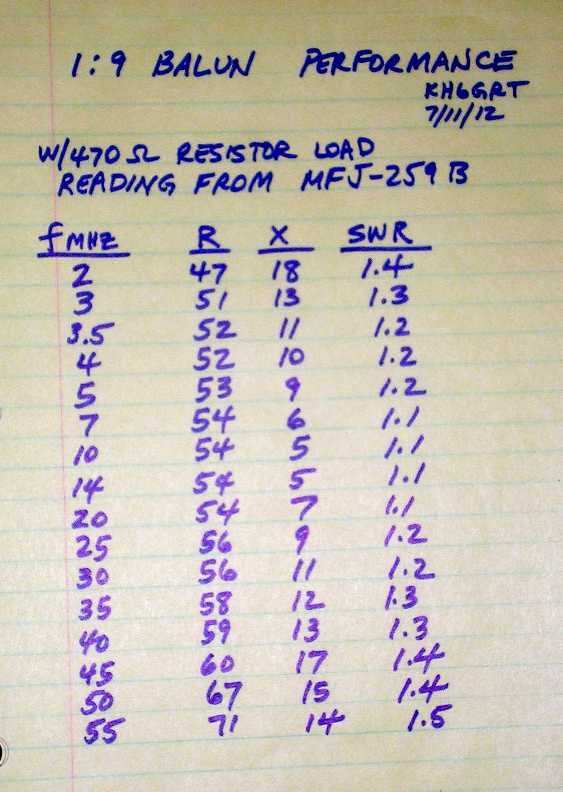 1:9 BALUN PERFORMANCE
KH6GRT
7/11/12
W/470 Ω RESISTOR LOAD
READING FROM MFJ-259B
f MHZ R X SWR
2 47 18 1.4
3 51 13 1.3
3.5 52 11 1.2
4 52 10 1.2
5 53 9 1.2
7 54 6 1.1
10 54 5 1.1
14 54 5 1.1
20 54 7 1.1
25 56 9 1.2
30 56 11 1.2
35 58 12 1.3
40 59 13 1.3
45 60 17 1.4
50 67 15 1.4
55 71 14 1.5